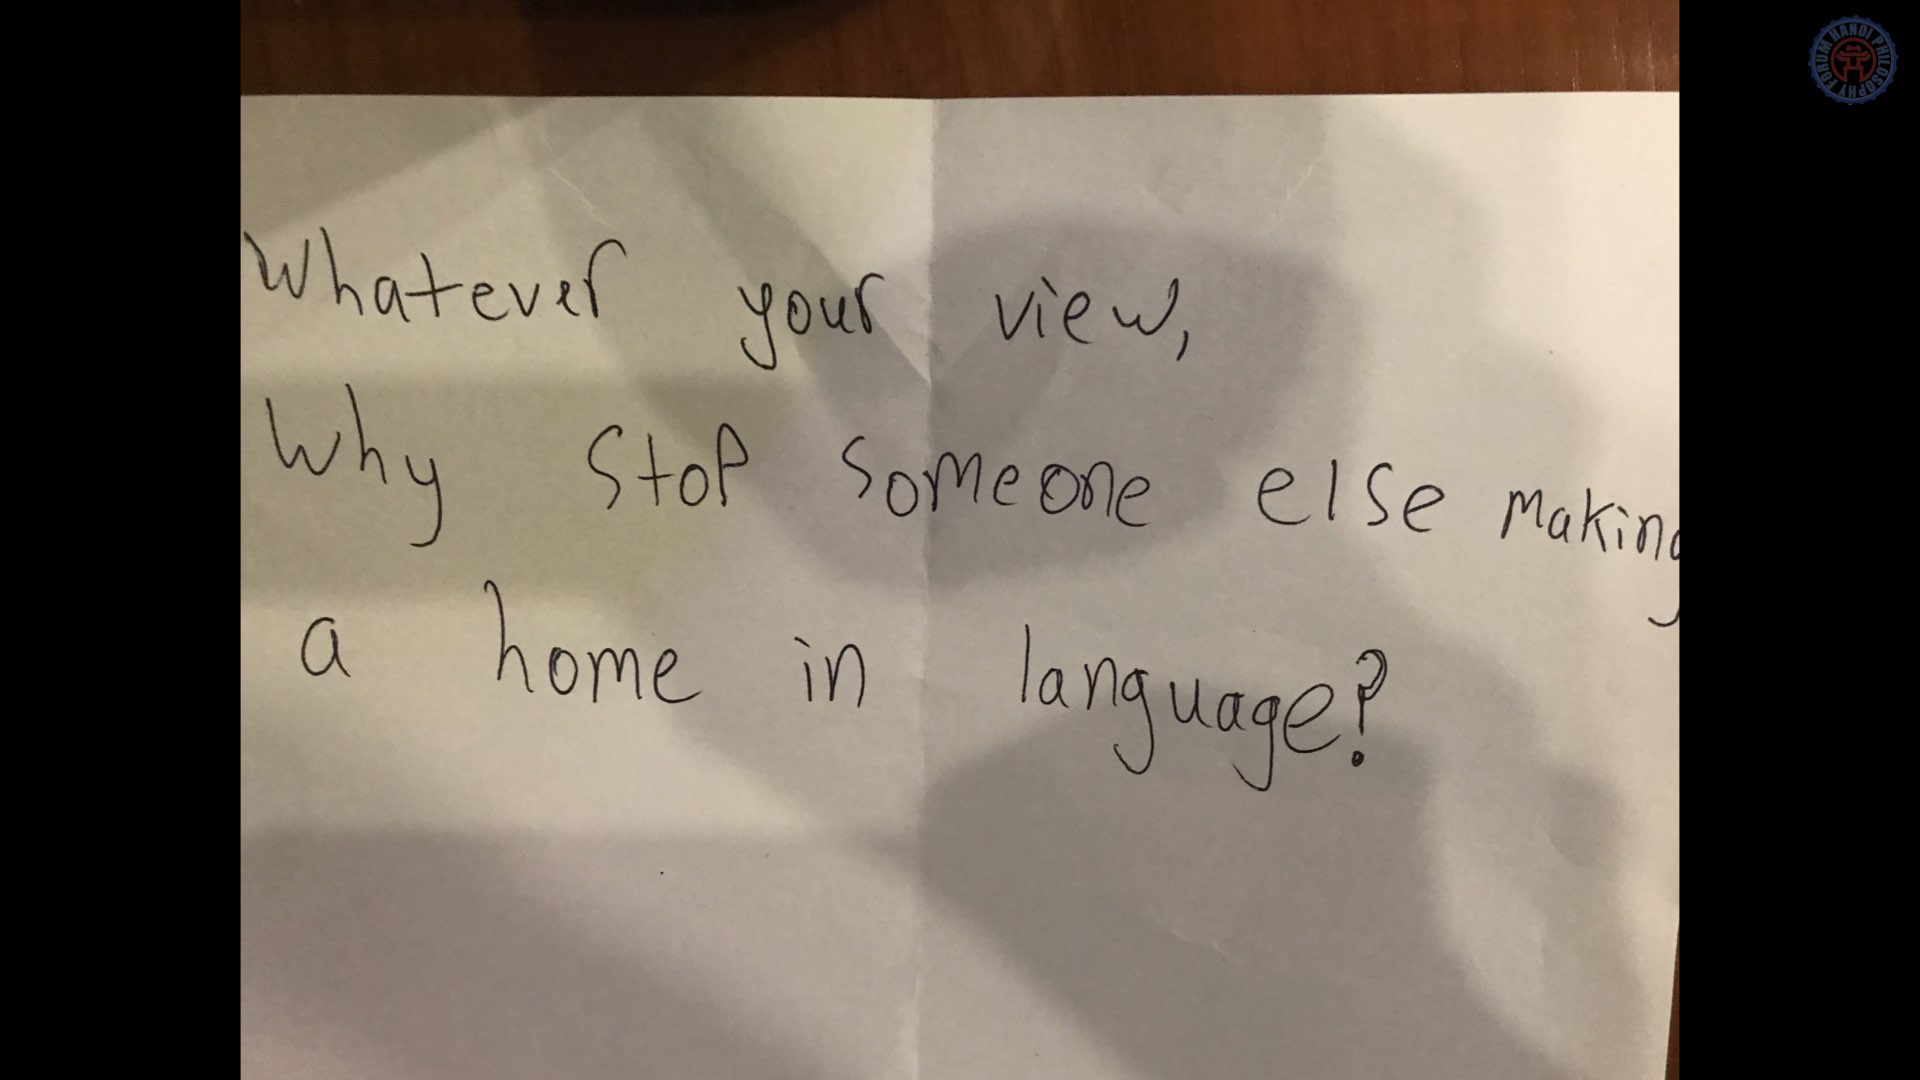 Whatever your view,
Why stop someone else making
a home in language?
HANOI PHILOSOPHY FORUM